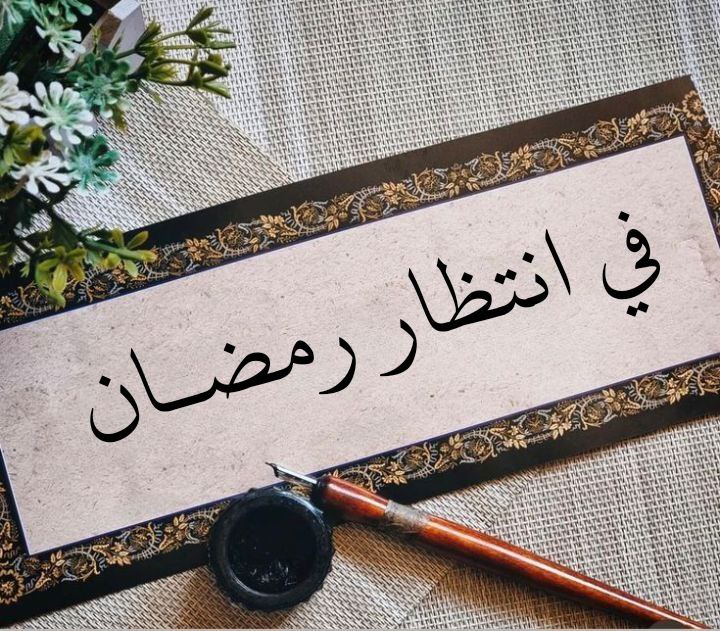 في انتظار رمضـان